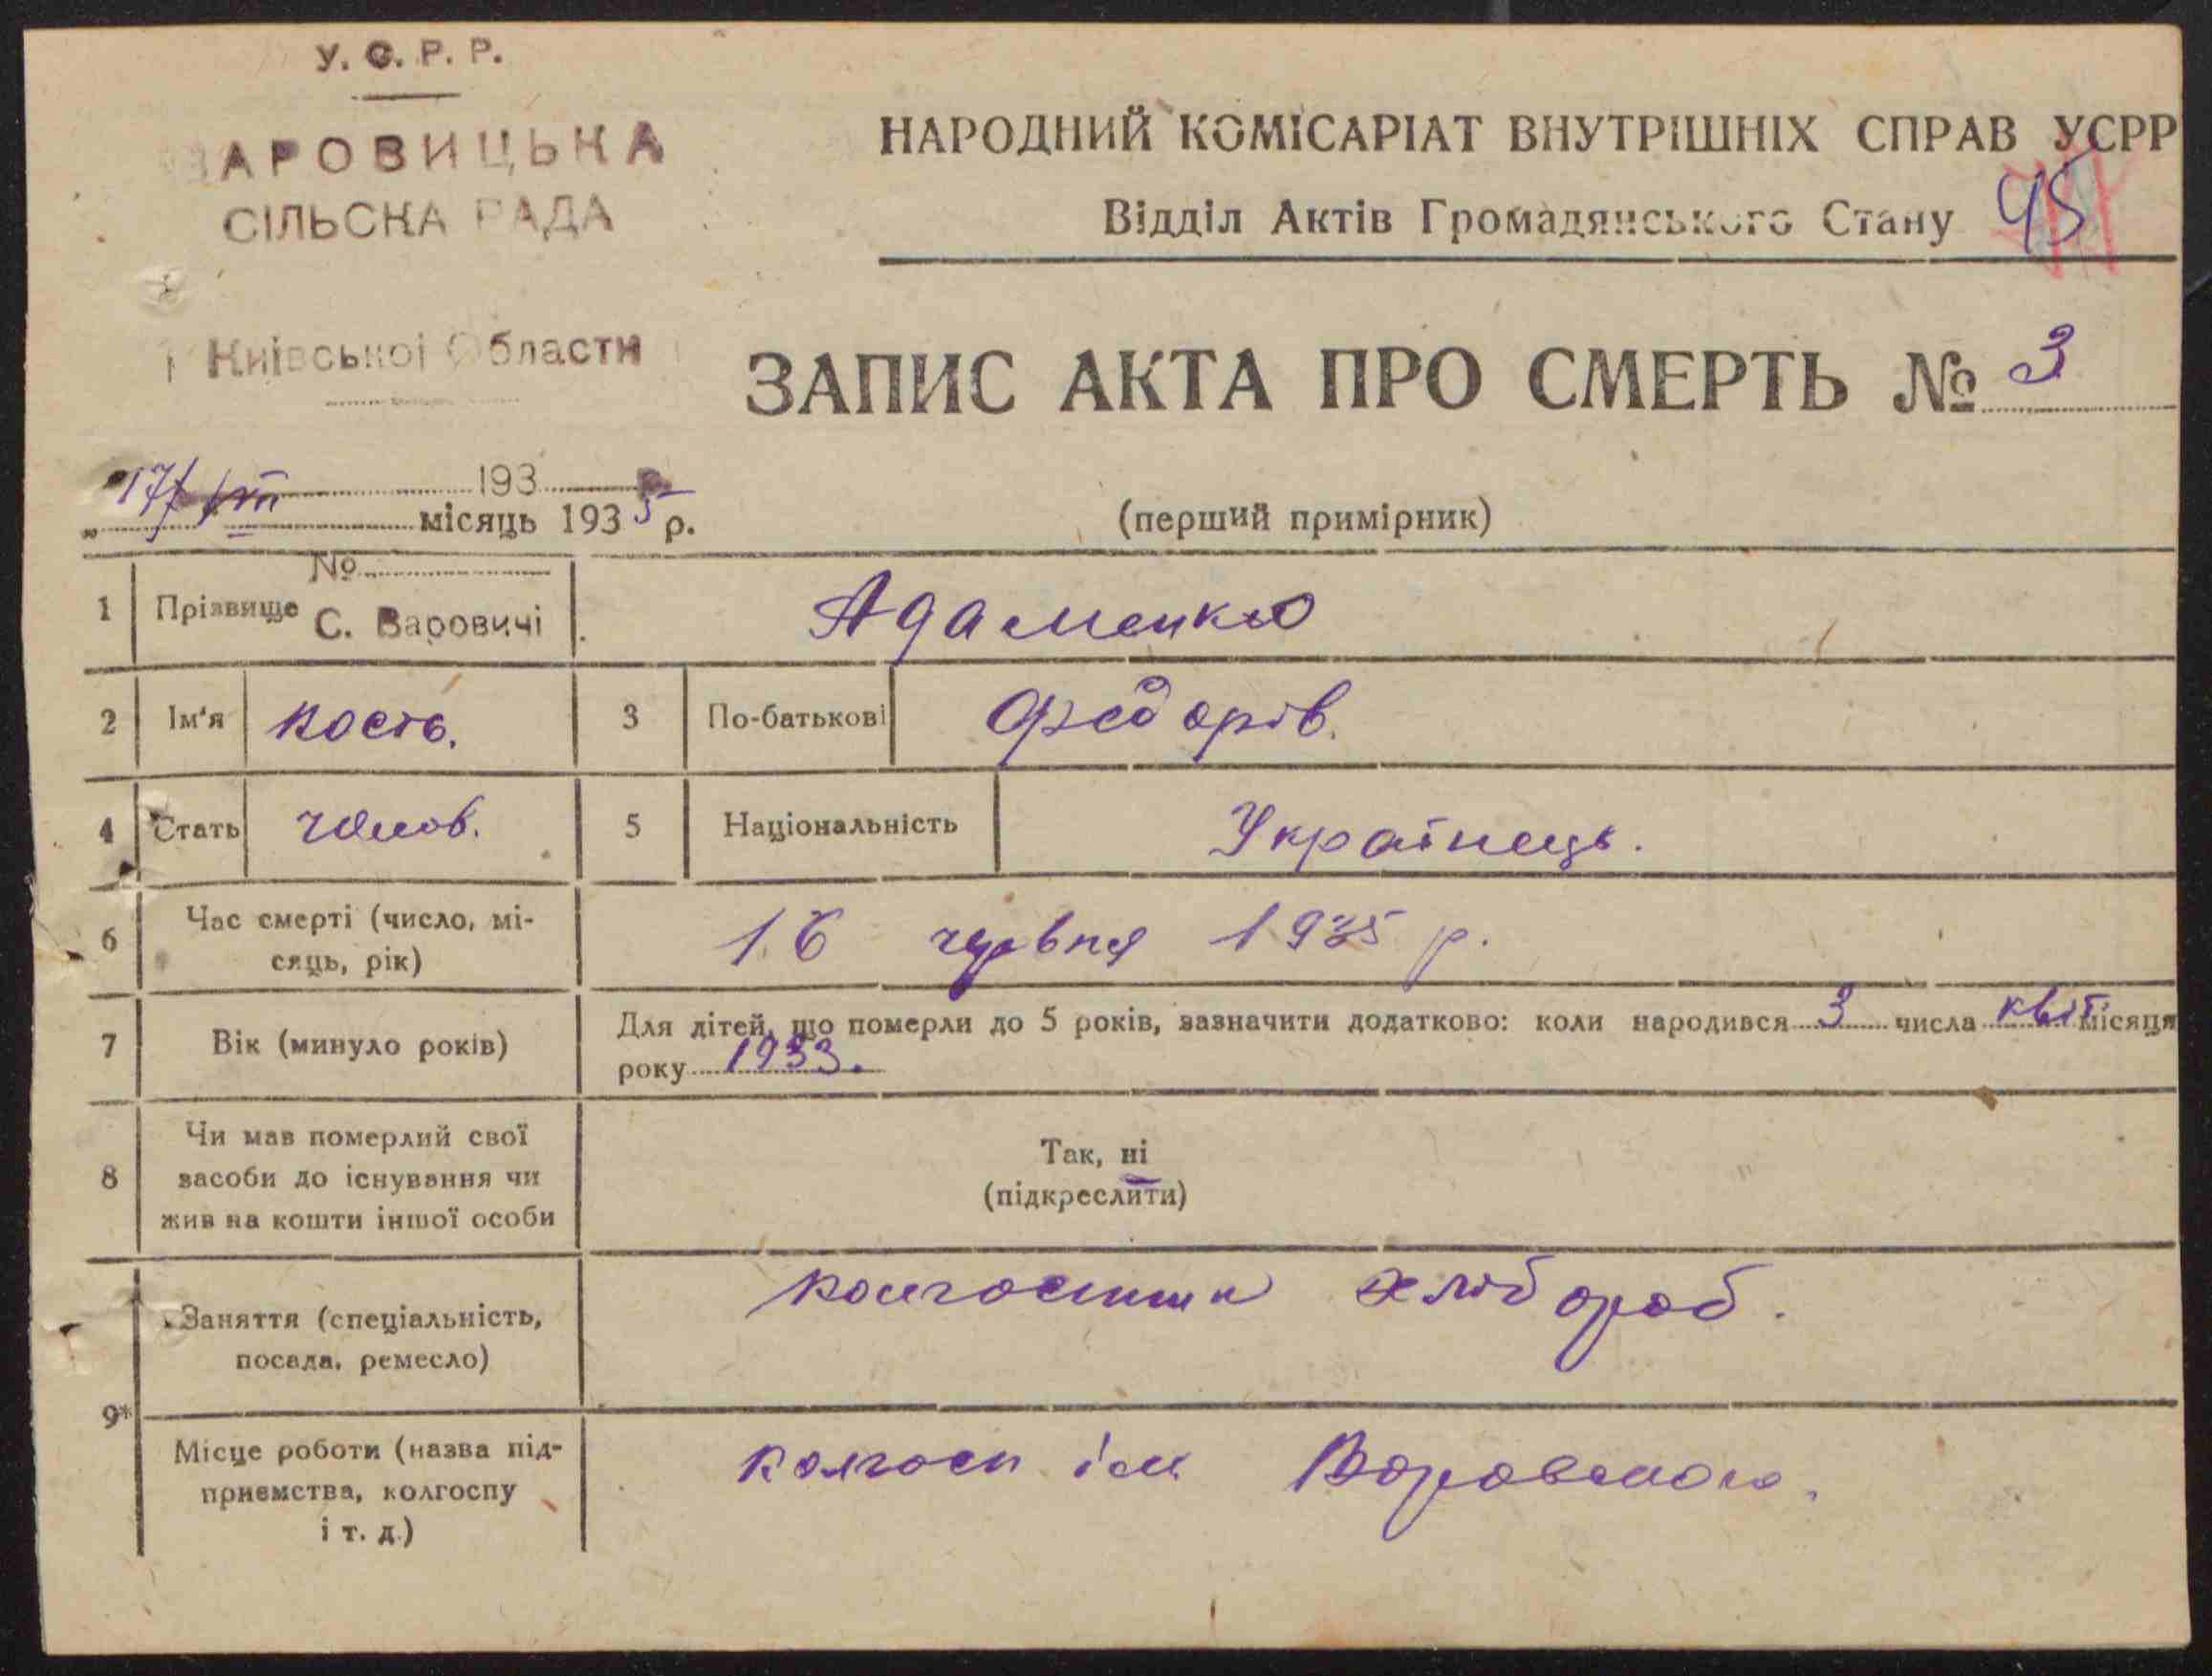 У. С. Р. Р.
ВАРОВИЦЬКА
СІЛЬСКА РАДА
Київської Области
НАРОДНИЙ КОМІСАРІАТ ВНУТРІШНІХ СПРАВ УСРР
Відділ Актів Громадянського Стану 45
ЗАПИС АКТА ПРО СМЕРТЬ № 3
193
17/VII місяць 1935 р.
(перший примірник)
№
1 Прізвище С. Варовичі Адаменко
2 Ім'я Кость. 3 По-батькові Федорів.
4 Стать чолов. 5 Національність Українець.
6 Час смерті (число, мі-
сяць, рік) 16 червня 1935 р.
7 Вік (минуло років) Для дітей, що померли до 5 років, зазначити додатково: коли народився 3 числа квіт. місяця
року 1933.
8 Чи мав померлий свої
засоби до існування чи
жив на кошти іншої особи
Так, ні
(підкреслити)
9*
Заняття (спеціальність,
посада, ремесло)
колгоспник хлібороб.
Місце роботи (назва під-
приємства, колгоспу
і т. д.)
колгосп ім Воровського.